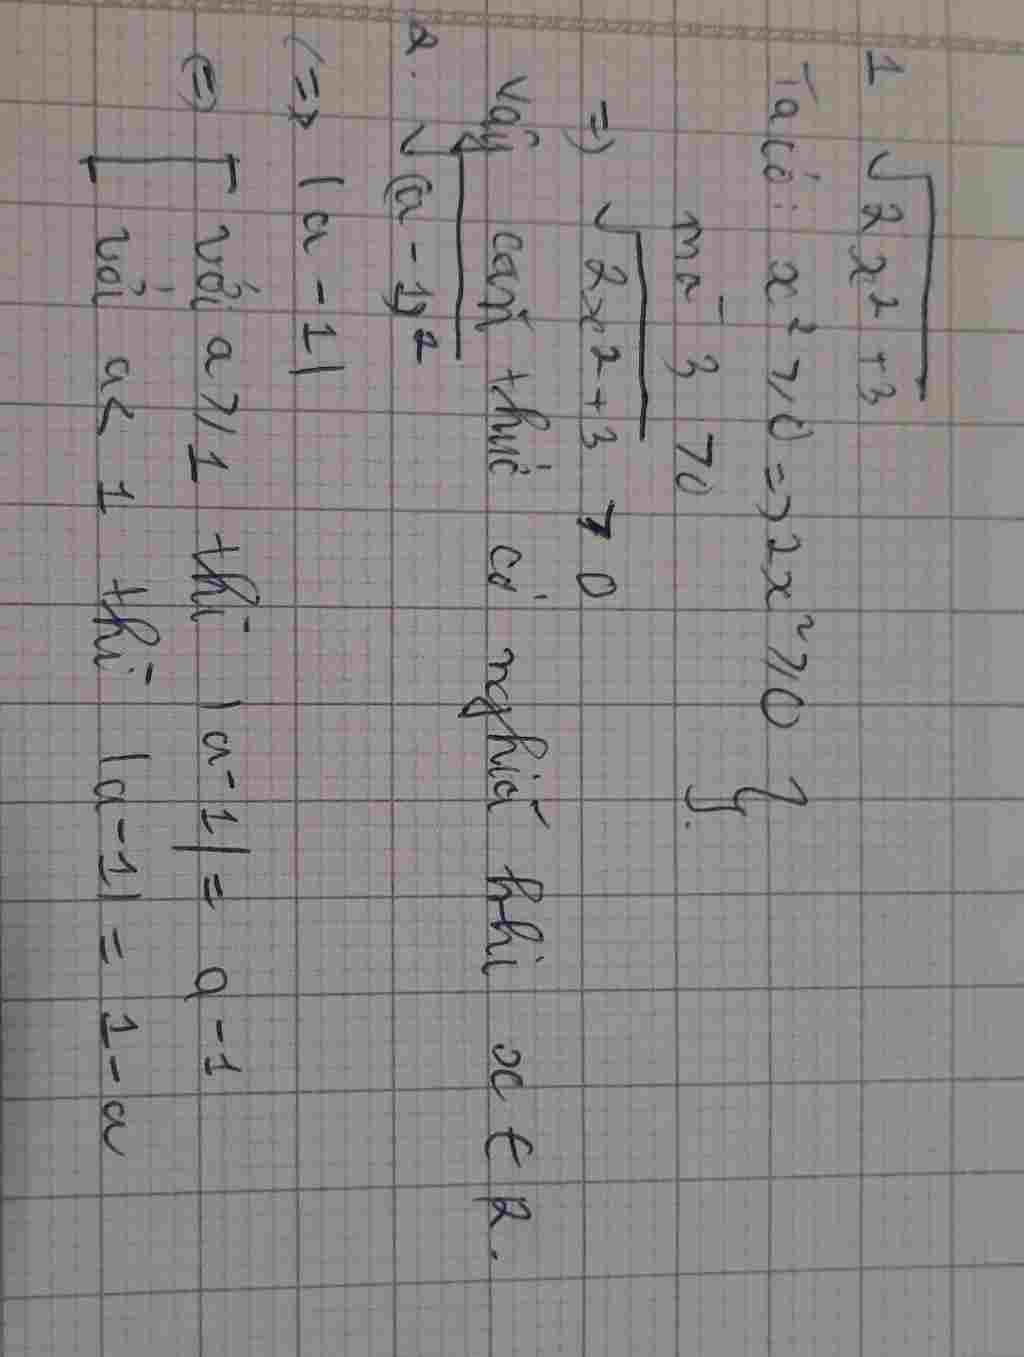 1 √2x² + 3
Ta có: x² ≥ 0 => 2x² ≥ 0 }
mà 3 > 0
=> √2x² + 3 > 0
Vậy căn thức có nghĩa khi x ∈ R.
2. √(a - 1)²
<=> |a - 1|
<=> [ với a ≥ 1 thì |a - 1| = a - 1
với a < 1 thì |a - 1| = 1 - a